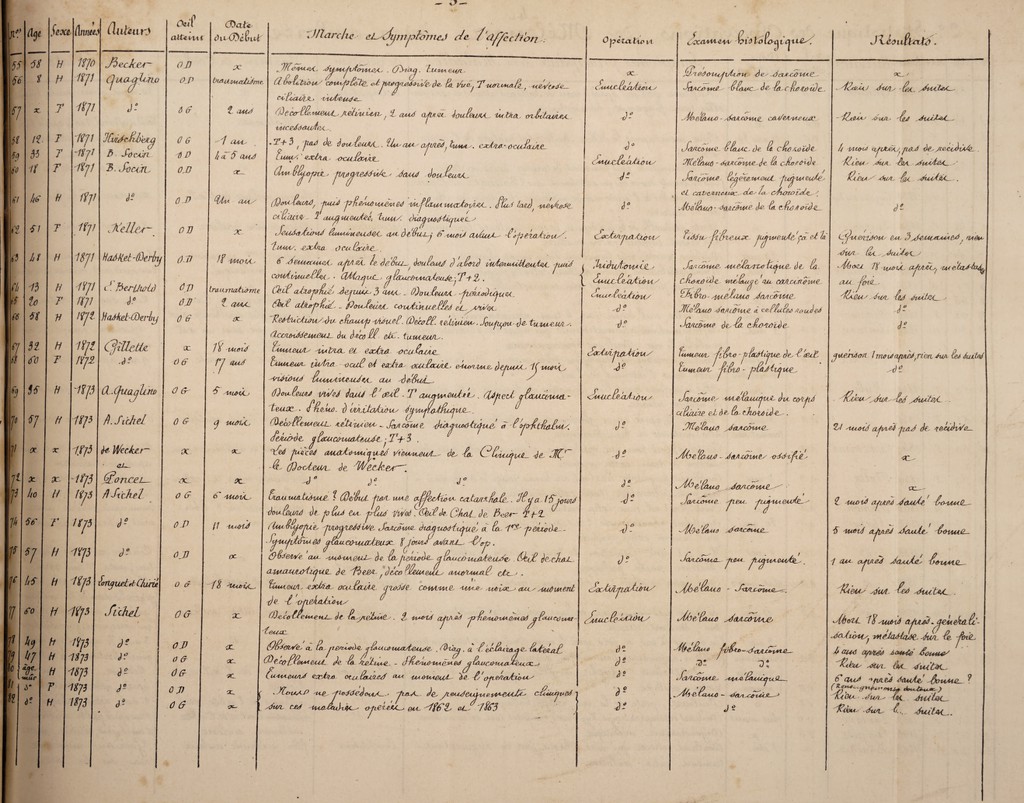 - 3 -
Nos Age Sexe Années Auteurs Oeil atteint Date du Début Marche et Symptômes de l'affection. Opération Examen histologique. Résultats.
55 58 H 1870 Becker OD x Mêmes symptômes. Diag. tumeur x Présomption de sarcôme x
56 8 H 1871 Quaglino OD traumatisme Abolition complète et progressive de la vue, T normale, névrose Enucléation Sarcôme blanc de la choroïde Rien sur les suites
ciliaire intense
57 x F 1871 do OG 2 ans Décollement rétinien, 2 ans après douleurs intra orbitaires do Mélano-sarcôme caverneux Rien sur les suites
incessantes
58 12 F 1871 Hirschberg OG 1 an T+3, pas de douleurs. Un an après, tum. extra-oculaire do Sarcôme blanc de la choroïde 4 mois après, pas de récidive
59 33 F 1871 B. Socin OD 4 à 5 ans Tum. extra oculaire Enucléation Mélano-sarcôme de la choroïde Rien sur les suites
60 18 F 1871 B. Socin OD x Amblyopie progressive sans douleurs do Sarcôme légèrement pigmenté Rien sur les suites.
et caverneux de la choroïde.
61 46 H 1871 do OD Un an Douleurs, puis phénomènes inflammatoires. Plus tard, névrose do Mélano-sarcôme de la choroïde do
ciliaire. T augmentée, tum. diagnostiquée
62 51 F 1871 Keller OD x Sensations lumineuses au début; 6 mois avant l'opération. Extirpation Tissu fibreux pigmenté çà et là Guérison en 3 semaines, rien
tum. extra oculaire. sur les suites
63 41 H 1871 Hasket-Derby OD 18 mois 6 semaines après le début, douleurs d'abord intermittentes puis Iridotomie Sarcôme mélanotique de la Mort 18 mois après, métastases
continuelles. Attaque glaucomateuse; T+2. Enucléation choroïde mélangé au carcinôme au foie
64 13 H 1871 E. Berthold OD traumatisme Oeil atrophié depuis 3 ans. Douleurs périodiques Enucléation Fibro-mélano sarcôme Rien sur les suites
65 20 F 1871 do OD 2 ans Oeil atrophié. Douleurs continuelles et vives do Mélano sarcôme à cellules rondes do
66 58 H 1872 Hasket-Derby OG x Restriction du champ visuel. Décoll. rétinien. Soupçon de tumeur. do Sarcôme de la choroïde do
Accroissement du décoll. etc. tumeur.
67 32 H 1872 Gillette x 18 mois Tumeur intra et extra oculaire Extirpation Tumeur fibro-plastique de l'oeil guérison 1 mois après, rien sur les suites
68 60 F 1872 do OG 17 ans Tumeur intra ocul. et extra oculaire énorme depuis 15 mois do Tumeur fibro-plastique do
visions lumineuses au début
69 35 H 1873 A. Quaglino OG 5 mois Douleurs vives dans l'oeil. T augmentée. Aspect glaucoma- Enucléation Sarcôme mélanique du corps Rien sur les suites
teux. Phéno. d'irritation sympathique. ciliaire et de la choroïde.
70 57 H 1873 A. Sichel OG 9 mois Décollement rétinien - Sarcôme diagnostiqué à l'ophthalm. do Mélano sarcôme 21 mois après pas de récidive
Période glaucomateuse; T+3.
71 x x 1873 de Wecker x x Les pièces anatomiques viennent de la Clinique de Mr do Mélano-sarcôme ossifié x
et le Docteur de Wecker.
72 x x 1873 Poncet x x do do do do Mélano sarcôme x
73 40 H 1873 A Sichel OG 6 mois Traumatisme? Début par une affection catarrhale. Il y a 15 jours do Sarcôme peu pigmenté 2 mois après santé bonne
douleurs de plus en plus vives. Oeil de Chat de Beer T+2
74 56 F 1873 do OD 11 mois Amblyopie progressive Sarcôme diagnostiqué à la 1re période do Mélano sarcôme 5 mois après santé bonne
Symptômes glaucomateux 8 jours avant l'op.
75 57 H 1873 do OD x Observé au moment de la période glaucomateuse. Oeil de chat do Sarcôme peu pigmenté. 1 an après santé bonne
amaurotique de Beer, décollement anormal etc.
76 45 H 1873 OG 18 mois Tumeur extra oculaire grosse comme une noix au moment Extirpation Mélano-Sarcôme. Rien sur les suites
de l'opération
77 60 H 1873 Sichel OG x Décollement de la rétine. 2 mois après phénomènes glaucoma- Enucléation Mélano sarcôme Mort 18 mois après-générali-
teux sation, métastase sur le foie
78 49 H 1873 do OD x Observé à la période glaucomateuse. Diag. à l'éclairage latéral do Mélano fibro-sarcôme 4 ans après santé bonne
79 47 H 1873 do OG x Décollement de la rétine. Phénomènes glaucomateux do do do Rien sur les suites
80 âge mûr H 1873 do OG x Tumeurs extra oculaires au moment de l'opération do Sarcôme mélanique 6 ans après santé bonne?
81 do F 1873 do OD x Nous ne possédons pas de renseignements cliniques do Mélano-sarcôme Rien sur les suites
82 do H 1873 do OG x sur ces malades opérés en 1862 et 1863 do do Rien sur l. suites.